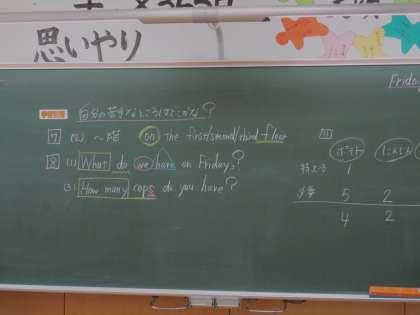 思いやり
Friday
学習課題 自分の苦手なところはどこかな?
7 (2) ～階 on the first/second/third floor
8 (1) What do we have on Friday?
(3) How many cups do you have?
11 ポテト にんじん
5 2
4 2